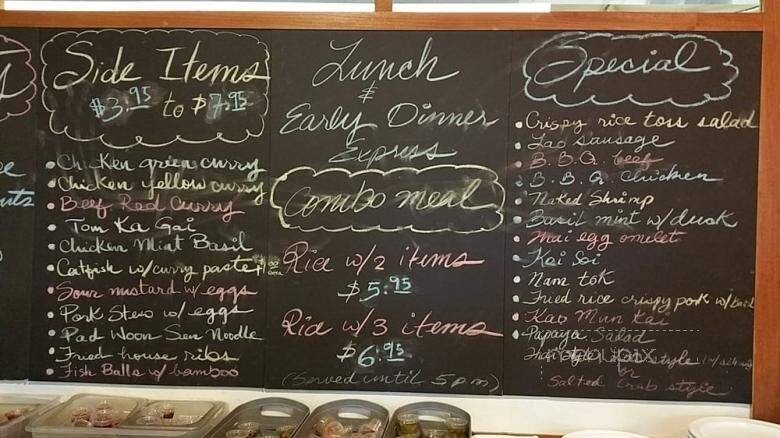 Side Items
$3.95 to $7.95
Chicken green curry
Chicken yellow curry
Beef Red Curry
Tom Ka Gai
Chicken Mint Basil
Catfish w/curry paste
Sour mustard w/ eggs
Pork Stew w/ eggs
Pad Woon Sen Noodle
Fried house ribs
Fish Balls w/ bamboo
Lunch
&
Early Dinner
Express
Combo meal
Rice w/2 items
$5.95
Rice w/3 items
$6.95
(Served until 5pm)
Special
Crispy rice toss salad
Lao sausage
B.B.Q. beef
B.B.Q. chicken
Naked Shrimp
Basil mint w/duck
Thai egg omelet
Koi Soi
Nam tok
Fried rice crispy pork w/
Kao Mun Kai
Papaya Salad
style
or
Salted Crab style